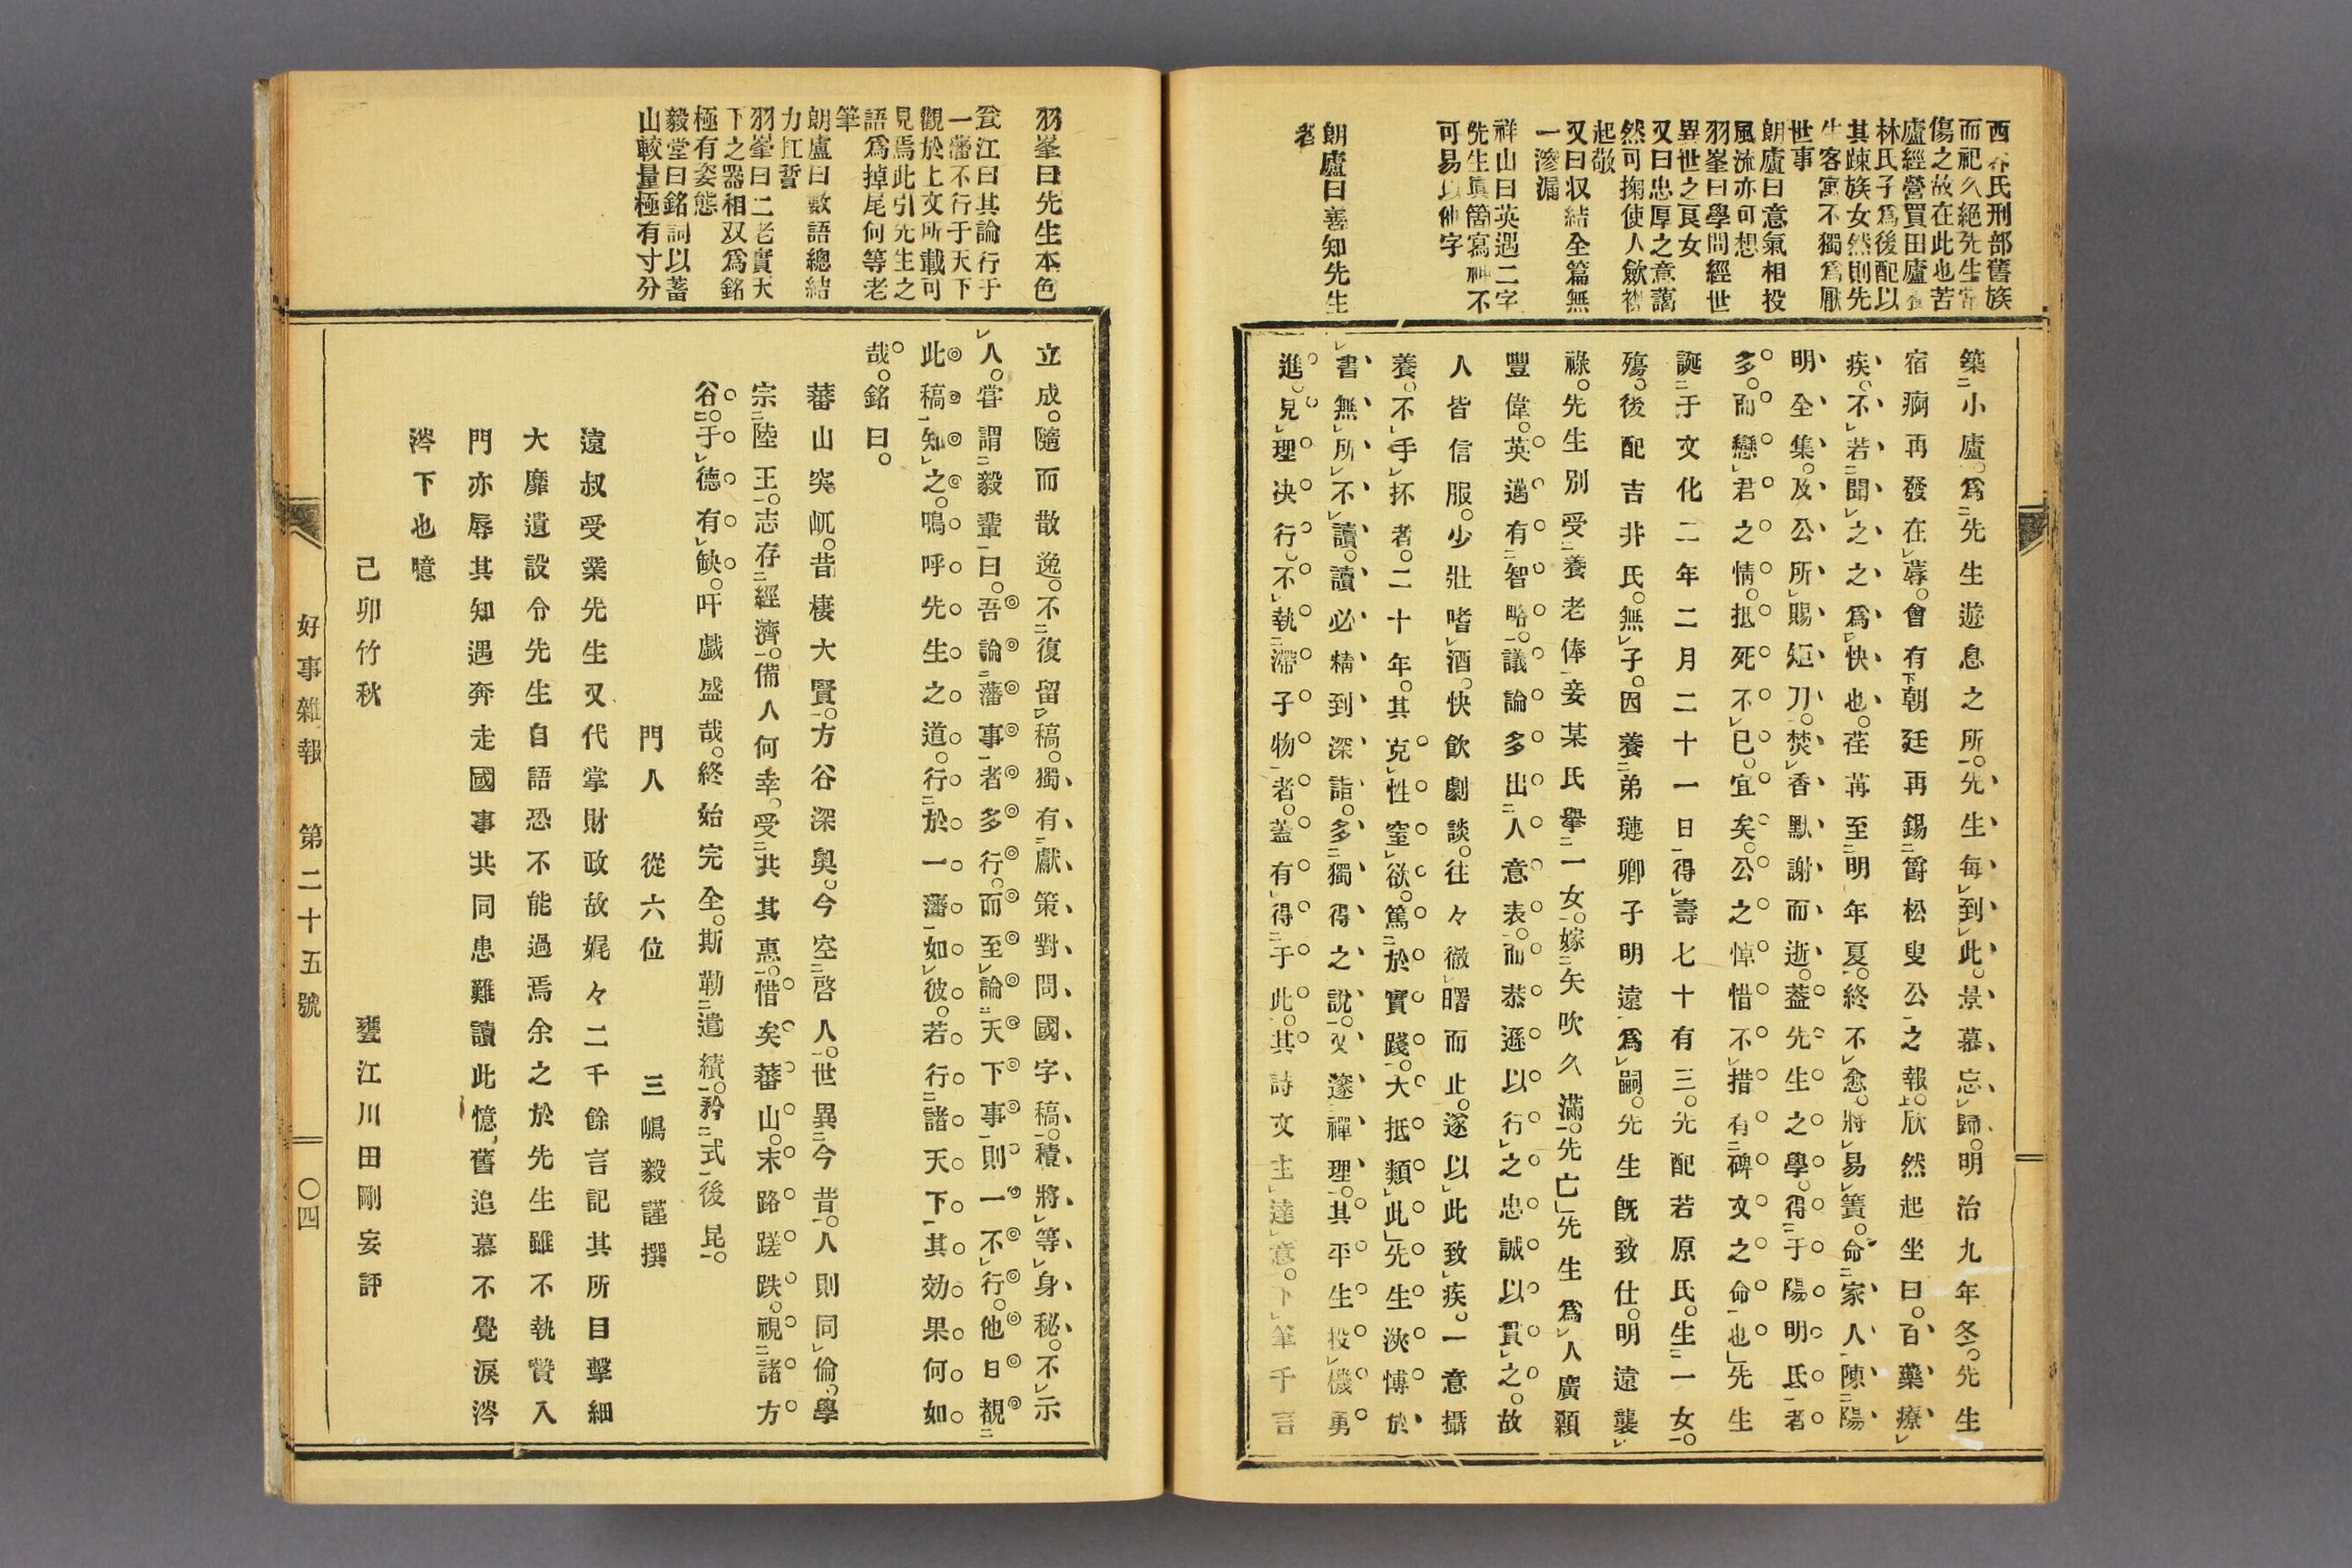 西 氏刑部舊族
而祀久絕先生
傷之故在此也苦
廬經營買田廬
林氏子爲後配以
其踈族女然則先
生客寓不獨爲厭
世事
朗廬曰意氣相投
風流亦可想
羽峯曰學問經世
異世之良女
又曰忠厚之意藹
然可掬使人歛襟
起敬
又曰収結全篇無
一滲漏
祥山曰英邁二字
先生眞箇寫神不
可易以他字
朗廬曰善知先生
者
築小廬。爲先生遊息之所。先生每到此。景慕忘歸。明治九年冬。先生
宿痾再發在蓐。會有朝廷再錫爵松叟公之報。欣然起坐曰。百藥療
疾。不若聞之之爲快也。荏苒至明年夏。終不愈。將易簀。命家人陳陽
明全集。及公所賜短刀。焚香默謝而逝。蓋先生之學。得于陽明氏者
多。而戀君之情。抵死不已。宜矣。公之悼惜不措有碑文之命也」先生
誕于文化二年二月二十一日得壽七十有三。先配若原氏。生一女。
殤。後配吉井氏。無子。因養弟璉卿子明遠爲嗣。先生既致仕。明遠襲
祿。先生別受養老俸妾某氏擧一女。嫁矢吹久滿。先亡」先生爲人廣顙
豐偉。英邁有智略。議論多出人意表。而恭遜以行之忠誠以貫之。故
人皆信服。少壯嗜酒。快飲劇談。往々徹曙而止。遂以此致疾。一意攝
養。不手抔者。二十年。其克性窒欲。篤於實踐。大抵類此」先生浹博於
書無所不讀。讀必精到深詣。多獨得之說。又邃禪理。其平生投機勇
進。見理决行。不執滯子物者。蓋有得于此。其詩文主達意。下筆千言
羽峯曰先生本色
瓮江曰其論行于
一藩不行于天下
觀於上文所載可
見焉此引先生之
語爲掉尾何等老
筆
朗廬曰數語總結
力扛晢
羽峯曰二老實天
下之器相双爲銘
極有姿態
毅堂曰銘詞以蓄
山較量極有寸分
立成。隨而散逸。不復留稿。獨有獻策對問國字稿。積將等身。秘。不示
人。嘗謂毅輩曰。吾論藩事者多行。而至論天下事則一不行。他日覩
此稿知之。鳴呼先生之道。行於一藩如彼。若行諸天下其効果何如
哉。銘曰。
蕃山突屼。昔棲大賢。方谷深奧。今空啓人。世異今昔。人則同倫。學
宗陸王。志存經濟。備人何幸。受共其惠。惜矣蕃山。末路蹉跌。視諸方
谷。于德有缺。吁戱盛哉。終始完全。斯勒遺績。矜式後昆。
門人 從六位 三嶋毅謹撰
遠叔受業先生又代掌財政故娓々二千餘言記其所目擊細
大靡遺設令先生自語恐不能過焉余之於先生雖不執贄入
門亦辱其知遇奔走國事共同患難讀此憶舊追慕不覺淚涔
涔下也噫
己卯竹秋 甕江川田剛妄評
好事雜報 第二十五號 〇四